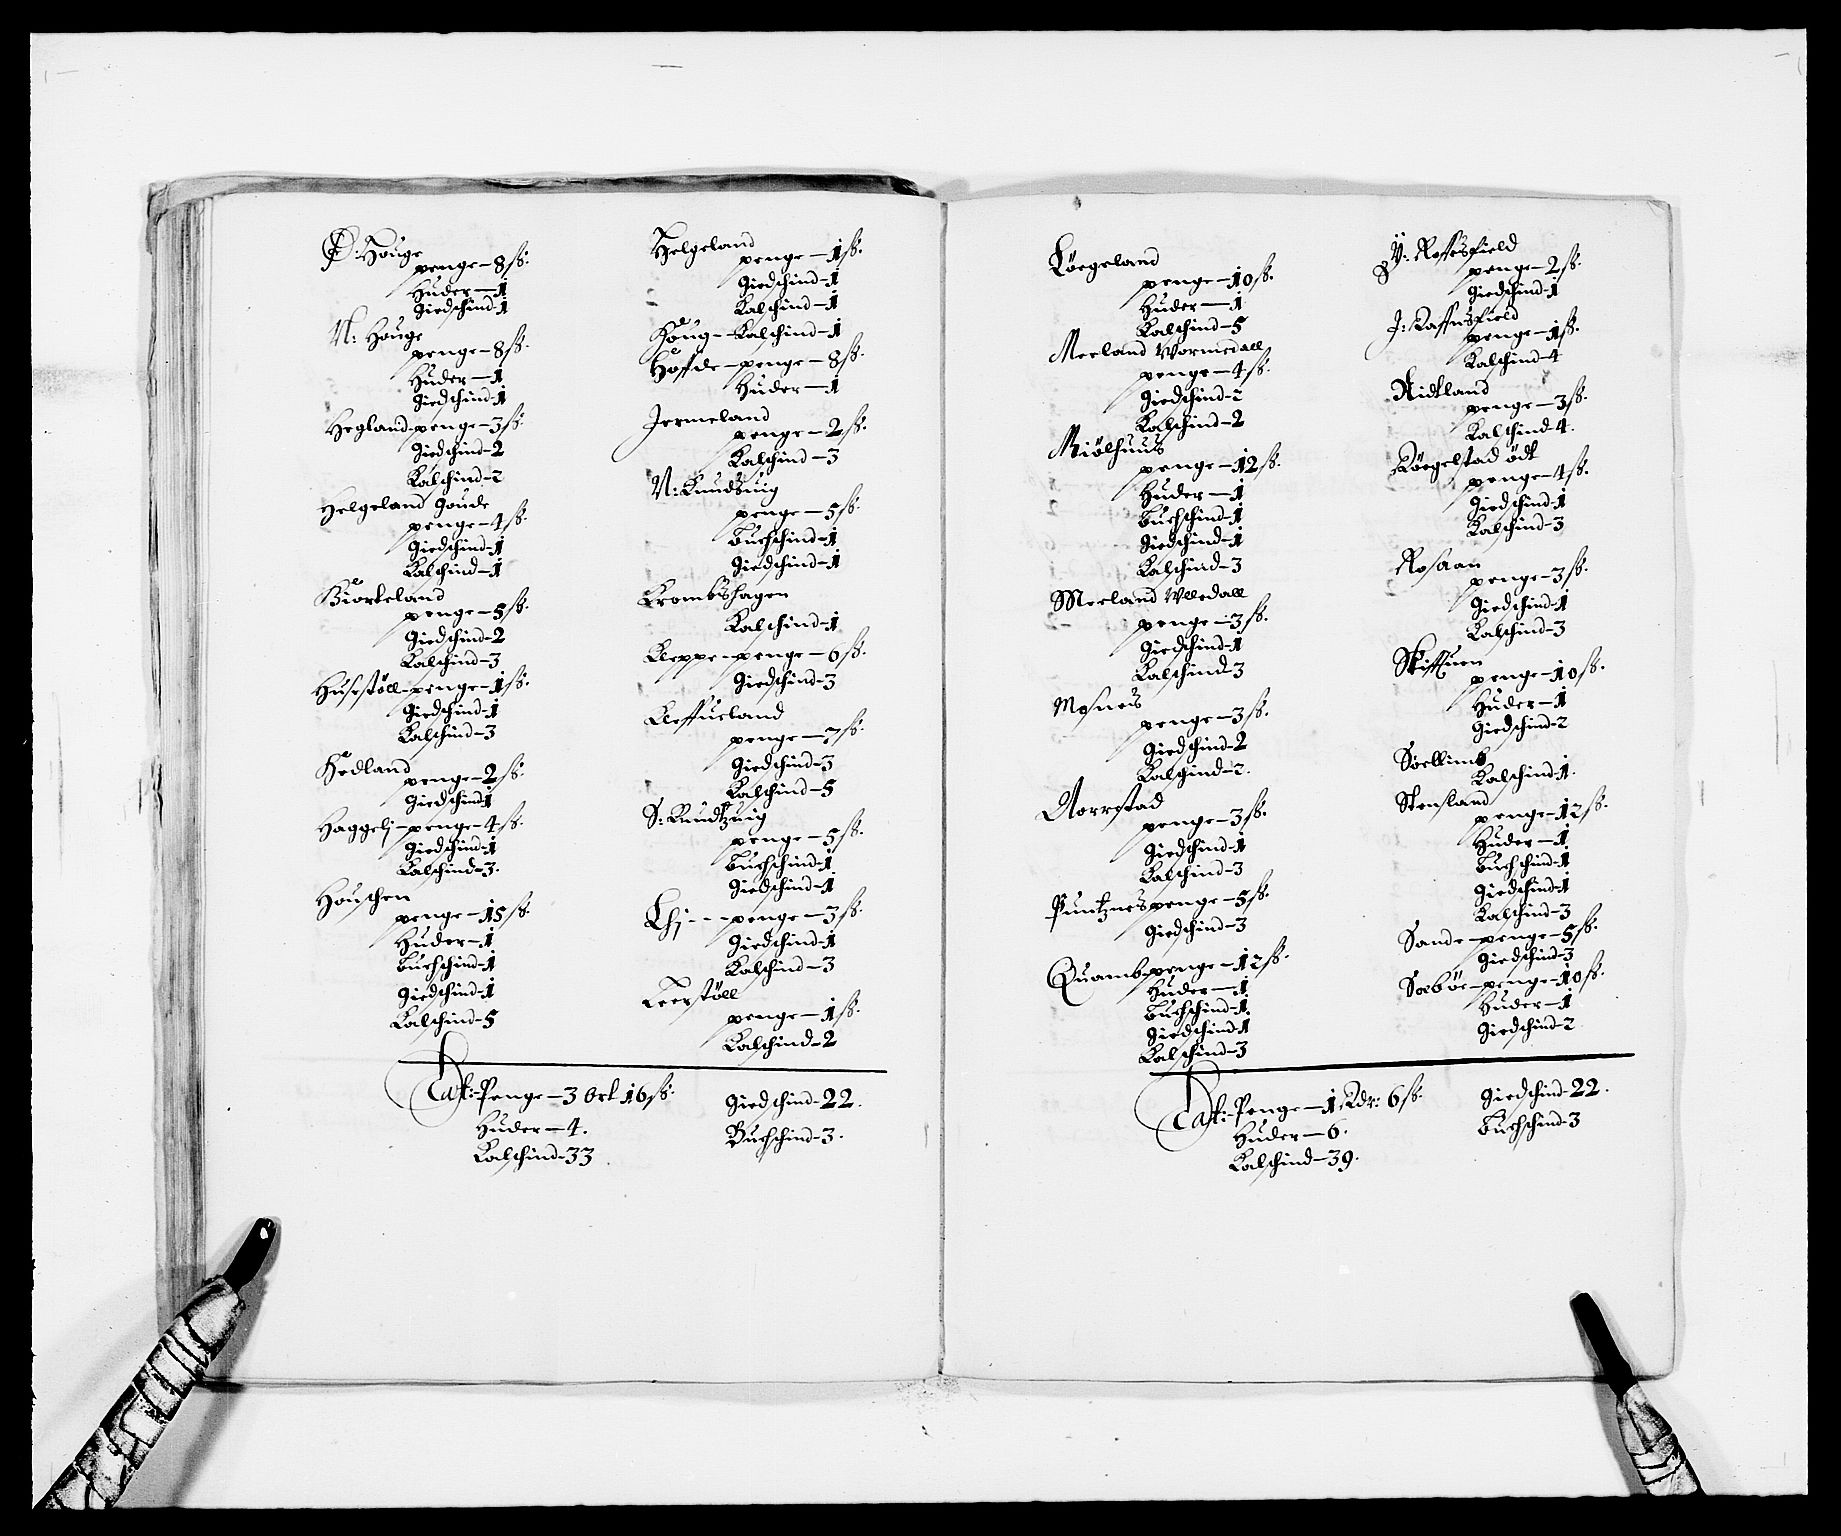 Ø: Houge
penge – 8 ß.
Huder – 1
Giedschind – 1
N: Houge
penge – 8 ß.
Huder – 1
Giedschind – 1
Hegland – penge – 3 ß.
Giedschind – 2
Kalschind – 2
Helgeland Goude
penge – 4 ß.
Giedschind – 1
Kalschind – 1
Biorkeland
penge – 5 ß.
Giedschind – 2
Kalschind – 3
Husestöll – penge – 1 ß.
Giedschind – 1
Kalschind – 3
Hedland
penge – 2 ß.
Giedschind 1
Haggelj – penge – 4 ß.
Giedschind – 1
Kalschind – 3.
Houschen
penge – 15 ß.
Huder – 1
Buchschind – 1
Giedschind – 1
Kalschind – 5
Helgeland
penge – 1 ß.
Giedschind – 1
Kalschind – 1
Houg – Kalschind – 1
Hoffde – penge – 8 ß.
Huder – 1
Jermeland
penge – 2 ß.
Kalschind – 3
N: Knudsuig
penge – 5 ß.
Buchschind – 1
Giedschind – 1
Krombshagen
Kalschind – 1
Kleppe – penge – 6 ß.
Giedschind – 3
Kleffueland
penge – 7 ß.
Giedschind – 3
Kalschind – 5
S: Knudtzuig
penge – 5 ß.
Buchschind – 1
Giedschind – 1
Lhj – – – penge – 3 ß.
Giedschind – 1
Kalschind – 3
Leerstöll
penge – 1 ß.
Kalschind – 2
Lat: Penge – 3 Ort 16 ß.
Huder – 4.
Kalschind – 33
Giedschind – 22.
Buchschind – 3.
Löegeland
penge – 10 ß.
Huder – 1
Kalschind – 5
Meeland Wormedall
penge – 4 ß.
Giedschind – 2
Kalschind – 2
Miölhuus
penge – 12 ß.
Huder – 1
Buchschind – 1
Giedschind – 1
Kalschind – 3
Meeland Vlledall
penge – 3 ß.
Giedschind – 1
Kalschind 3
Mosnes
penge – 3 ß.
Giedschind – 2
Kalschind – 2.
Norrstad
penge – 3 ß.
Giedschind – 1
Kalschind – 3
Puntznes penge – 5 ß.
Giedschind – 3
Quamb – penge – 12 ß.
Huder – 1
Buchschind – 1.
Giedschind 1
Kalschind – 3
Y: Roffsfield
penge – 2 ß.
Giedschind 1
J: Raffnsfield
penge – 1 ß.
Kalschind – 4
Ridtland
penge – 3 ß.
Kalschind – 4.
Röegelstad ödt
penge – 4 ß.
Giedschind – 1
Kalschind – 3
Rosaan
penge – 3 ß.
Giedschind 1
Kalschind – 3
Skiffuen
penge – 10 ß.
Huder – 1
Giedschind – 2
Söellimb
Kalschind – 1.
Stensland
penge – 12 ß.
Huder – 1
Buchschind – 1
Giedschind 1
Kalschind – 3
Sande – penge – 5 ß.
Giedschind – 3
Soeböe – penge – 10 ß.
Huder – 1
Giedschind – 2
Lat: Penge – 1 Rdr: 6 ß.
Huder – 6.
Kalschind – 39.
Giedschind – 22.
Buchschind – 3